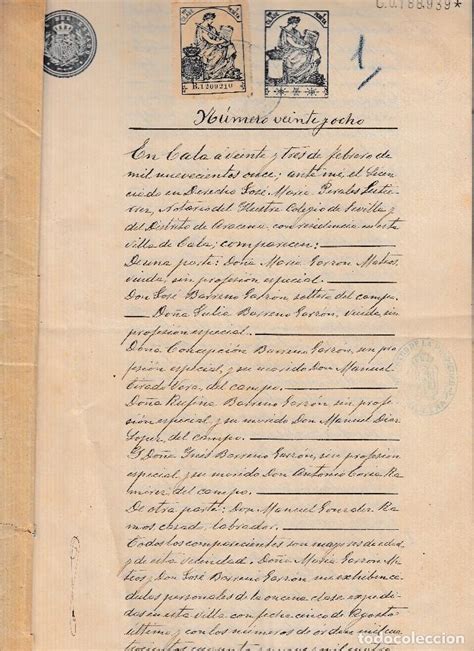 C.0.188.939*
B.1269210
1
Número veinte y ocho
En Cala a veinte y tres de febrero de
mil nuevecientos once; ante mí, el Licen-
ciado en Derecho José María Perales Gutie-
rrez, Notario del Ilustre Colegio de Sevilla y
del Distrito de Aracena, con residencia en esta
villa de Cala; comparecen:
De una parte: Doña María Garrón Mateos,
viuda, sin profesión especial.
Don José Barreno Garzon soltero del campo.
Doña Julia Barreno Garzón, viuda, sin
profesión especial.
Doña Concepción Barreno Garzón, sin pro-
fesión especial, y su marido Don Manuel
Tirado Vera, del campo.
Doña Rufina Barreno Garzón sin profe-
sión especial, y su marido Don Manuel Diaz
Lopez, del campo.
Y Doña Inés Barreno Garzón, sin profesión
especial, y su marido Don Antonio Corea Ra-
mirez del campo.
De otra parte: Don Manuel Gonzalez Ra-
mos casado, labrador.
Todos los comparecientes son mayores de edad,
y de esta vecindad. Doña María Garzon Ma-
teos y Don José Barreno Garzón me exhiben cé-
dulas personales de la oncena clase, expedi-
das en esta villa con fecha cinco de Agosto
último y con los números de orden mil cua
trocientos cuarenta y nueve y mil cuatro
todocoleccion